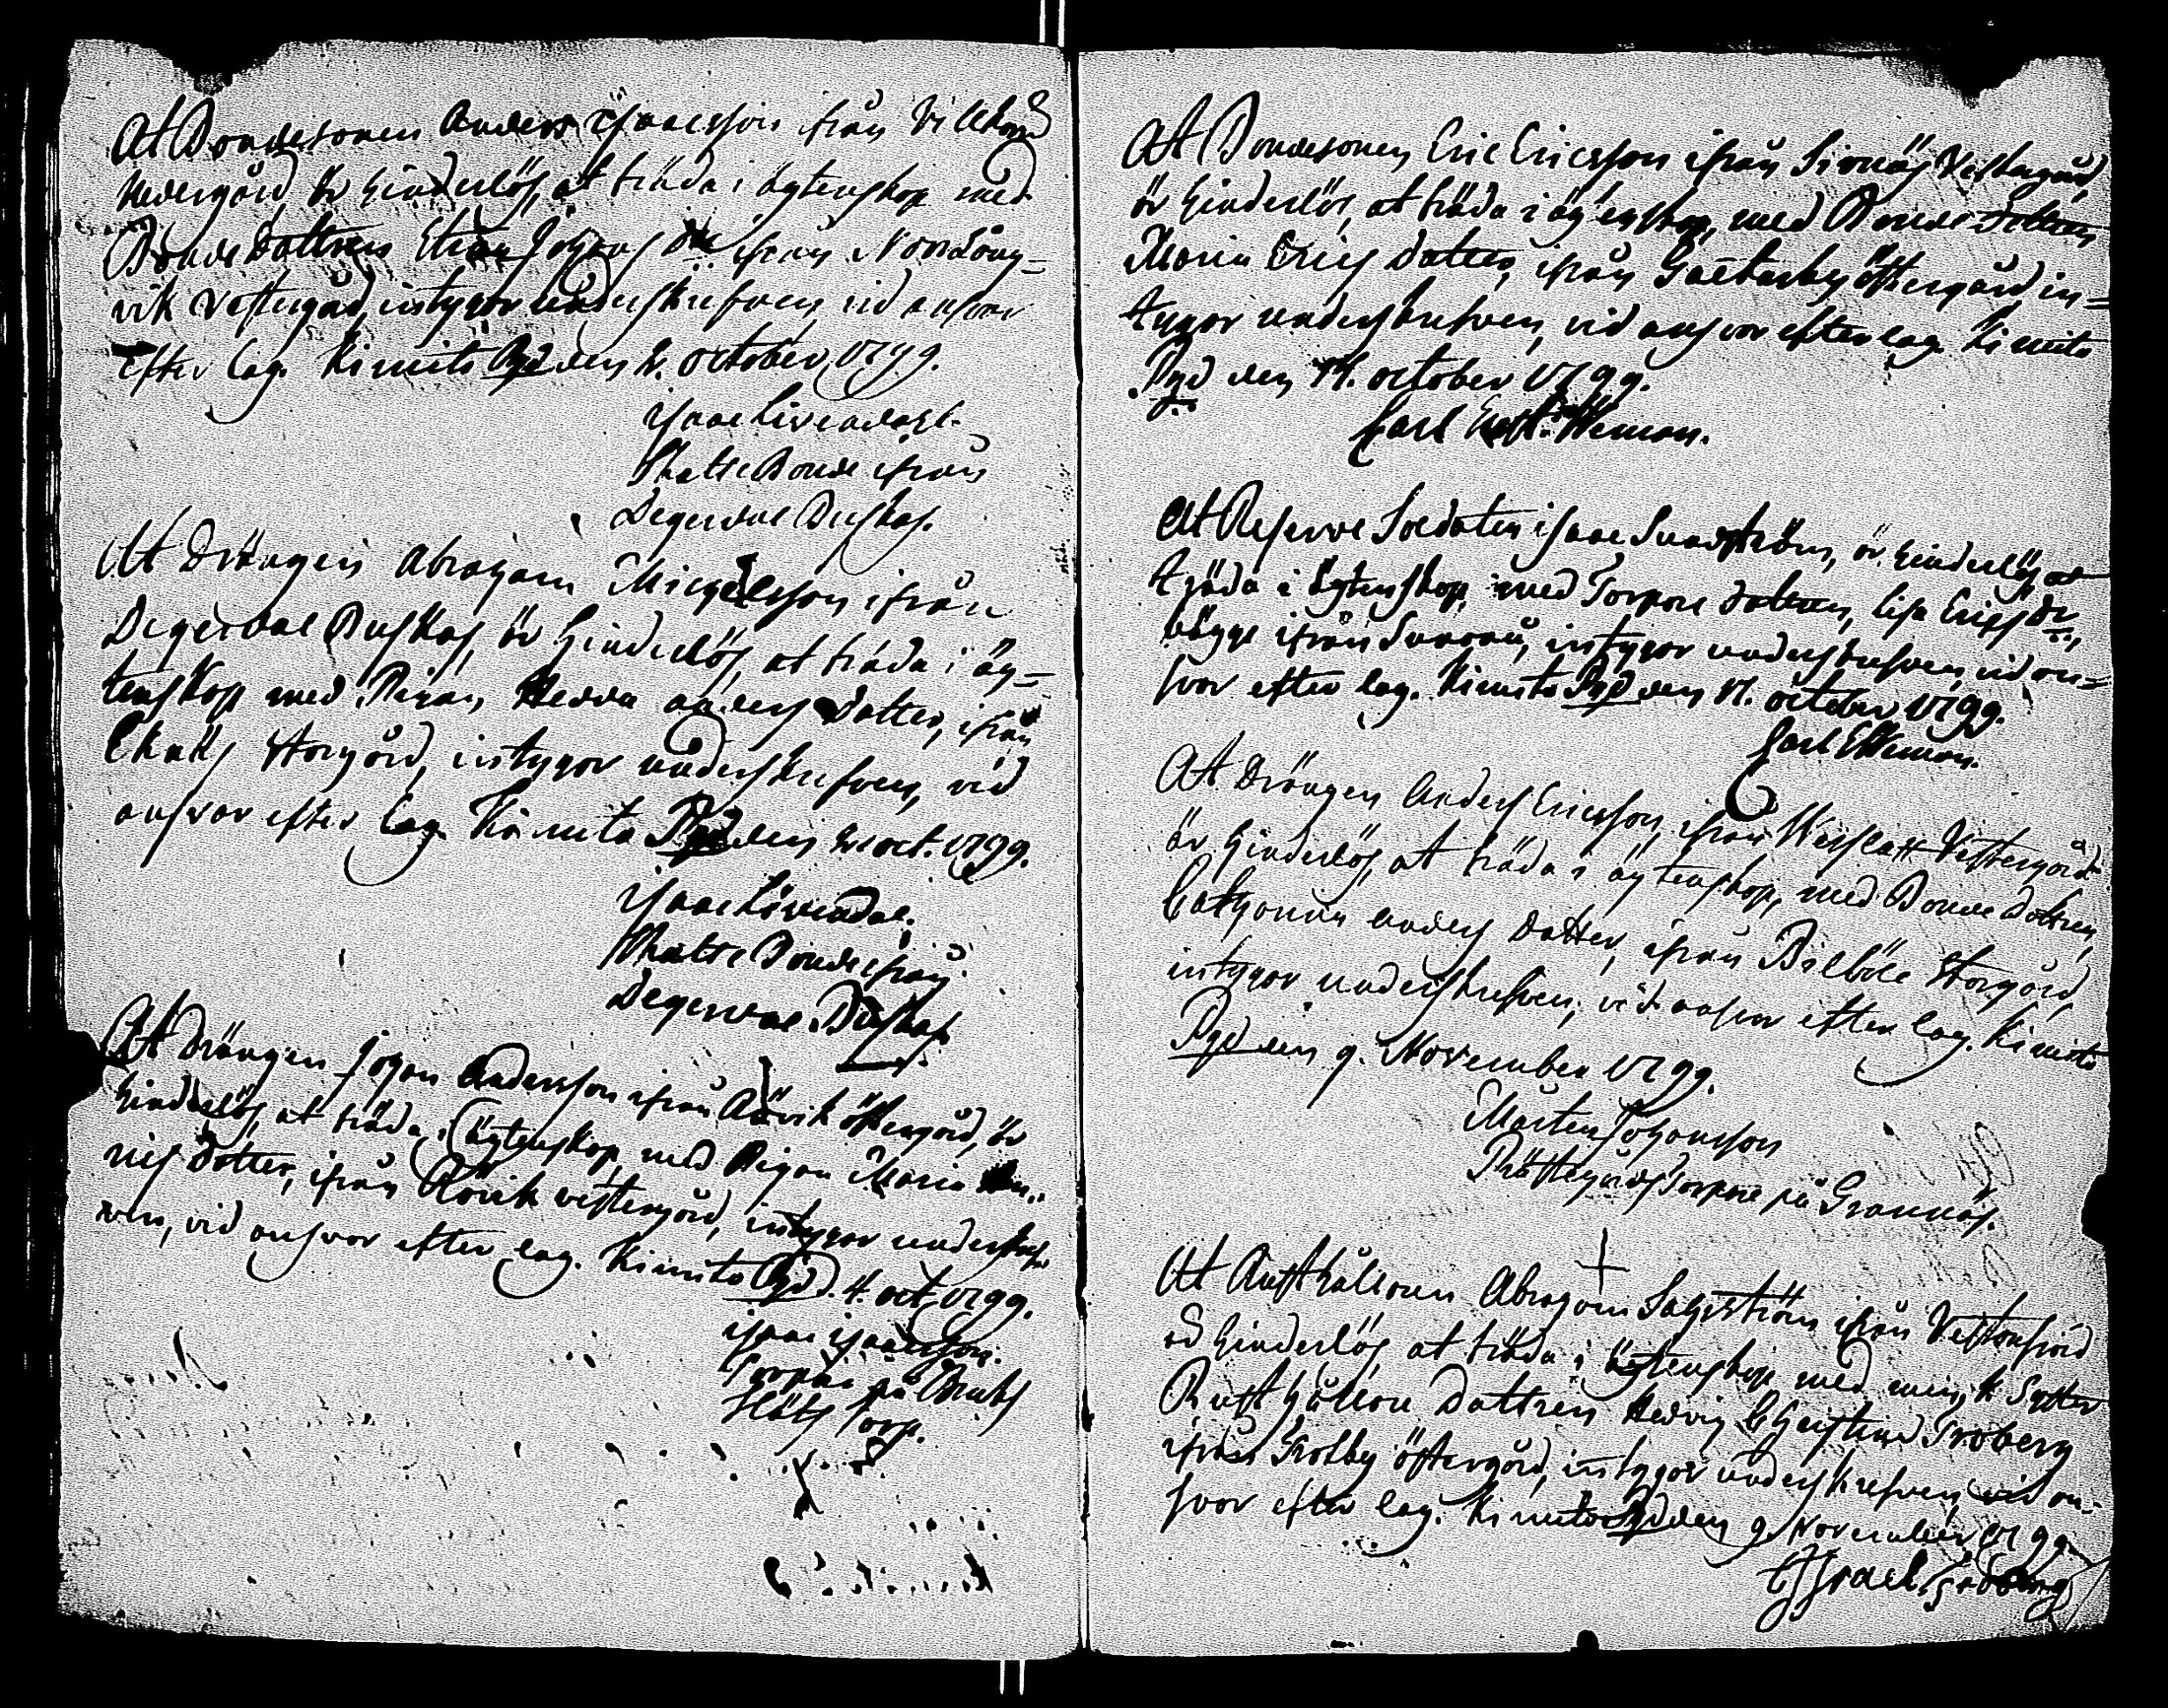 At Bondesonen Anders Isaacsson ifrån
Nedergård, är hinderlös, at träda i ägtenskap med
Bonde Dottren Johans ifrån Norrlång=
vik Vestergård, intygar underskrefven, vid ansvar
efter lag. Kimito Pgd den 2. october 1799.
Isaac Livendahl.
Skatte Bonde ifrån
Degerdal Buskas.
At Drängen Abraham Michelsson ifrån
Degerdal Buskas, är hinderlös, at träda i äg=
tenskap med Pigan Hedda Anders Dotter, ifrån
Ekniks Storgård, intygar underskrefven, vid
ansvar efter lag. Kimito Pgd den oct. 1799.
Isaac Livendal.
Skatte Bonde ifrån
Degerdal. Buskas.
At Drängen Johan Andersson ifrån Rövik östergård, är
hinderlös, at träda i ägtenskap med Pigan Maria
Dotter, ifrån Rövik vestergård, intygar underskref
ven, vid ansvar efter lag. Kimito Pgd d. 4. oct. 1799.
Isaac Isaacsson.
Torpare på
Torp.
At Bondesonen Eric Ericsson ifrån Sirnäs Vestergård,
är hinderlös, at träda i ägtenskap, med Bonde Dottren
Maria Erics Dotter, ifrån Galtarby östergård in=
tygar underskrefven, vid ansvar efter lag. Kimito
Pgd den 14. october 1799.
Carl Hemman.
At Reserve Soldaten Isaac Sundström, är hinderlös, at
träda i ägtenskap, med Torpare Dottren, Lisa Ericsdr.,
bägge ifrån intygar underskrefven, vid an=
svar efter lag. Kimito Pgd den october 1799.
Carl Hemman.
At Drängen Anders Ericsson, ifrån Vestergård
är hinderlös, at träda i ägtenskap, med Bonde Dottren,
Catharina Anders Dotter, ifrån Bilböle Storgård,
intygar underskrefven, vid ansvar efter lag. Kimito
Pgd den 9. November 1799.
Mårten Johansson
Prästegårds Torpare på Grannäs.
At Rusthållaren Abraham Sahlström ifrån Vestanfjärd
är hinderlös, at träda i ägtenskap med min k. Syster
Rusthållare Dottren Hedvig Christina Froberg
ifrån Trotby östergård, intygar underskrefven vid an-
svar efter lag. Kimito Pgd den 9. November 1799.
Israel Froberg